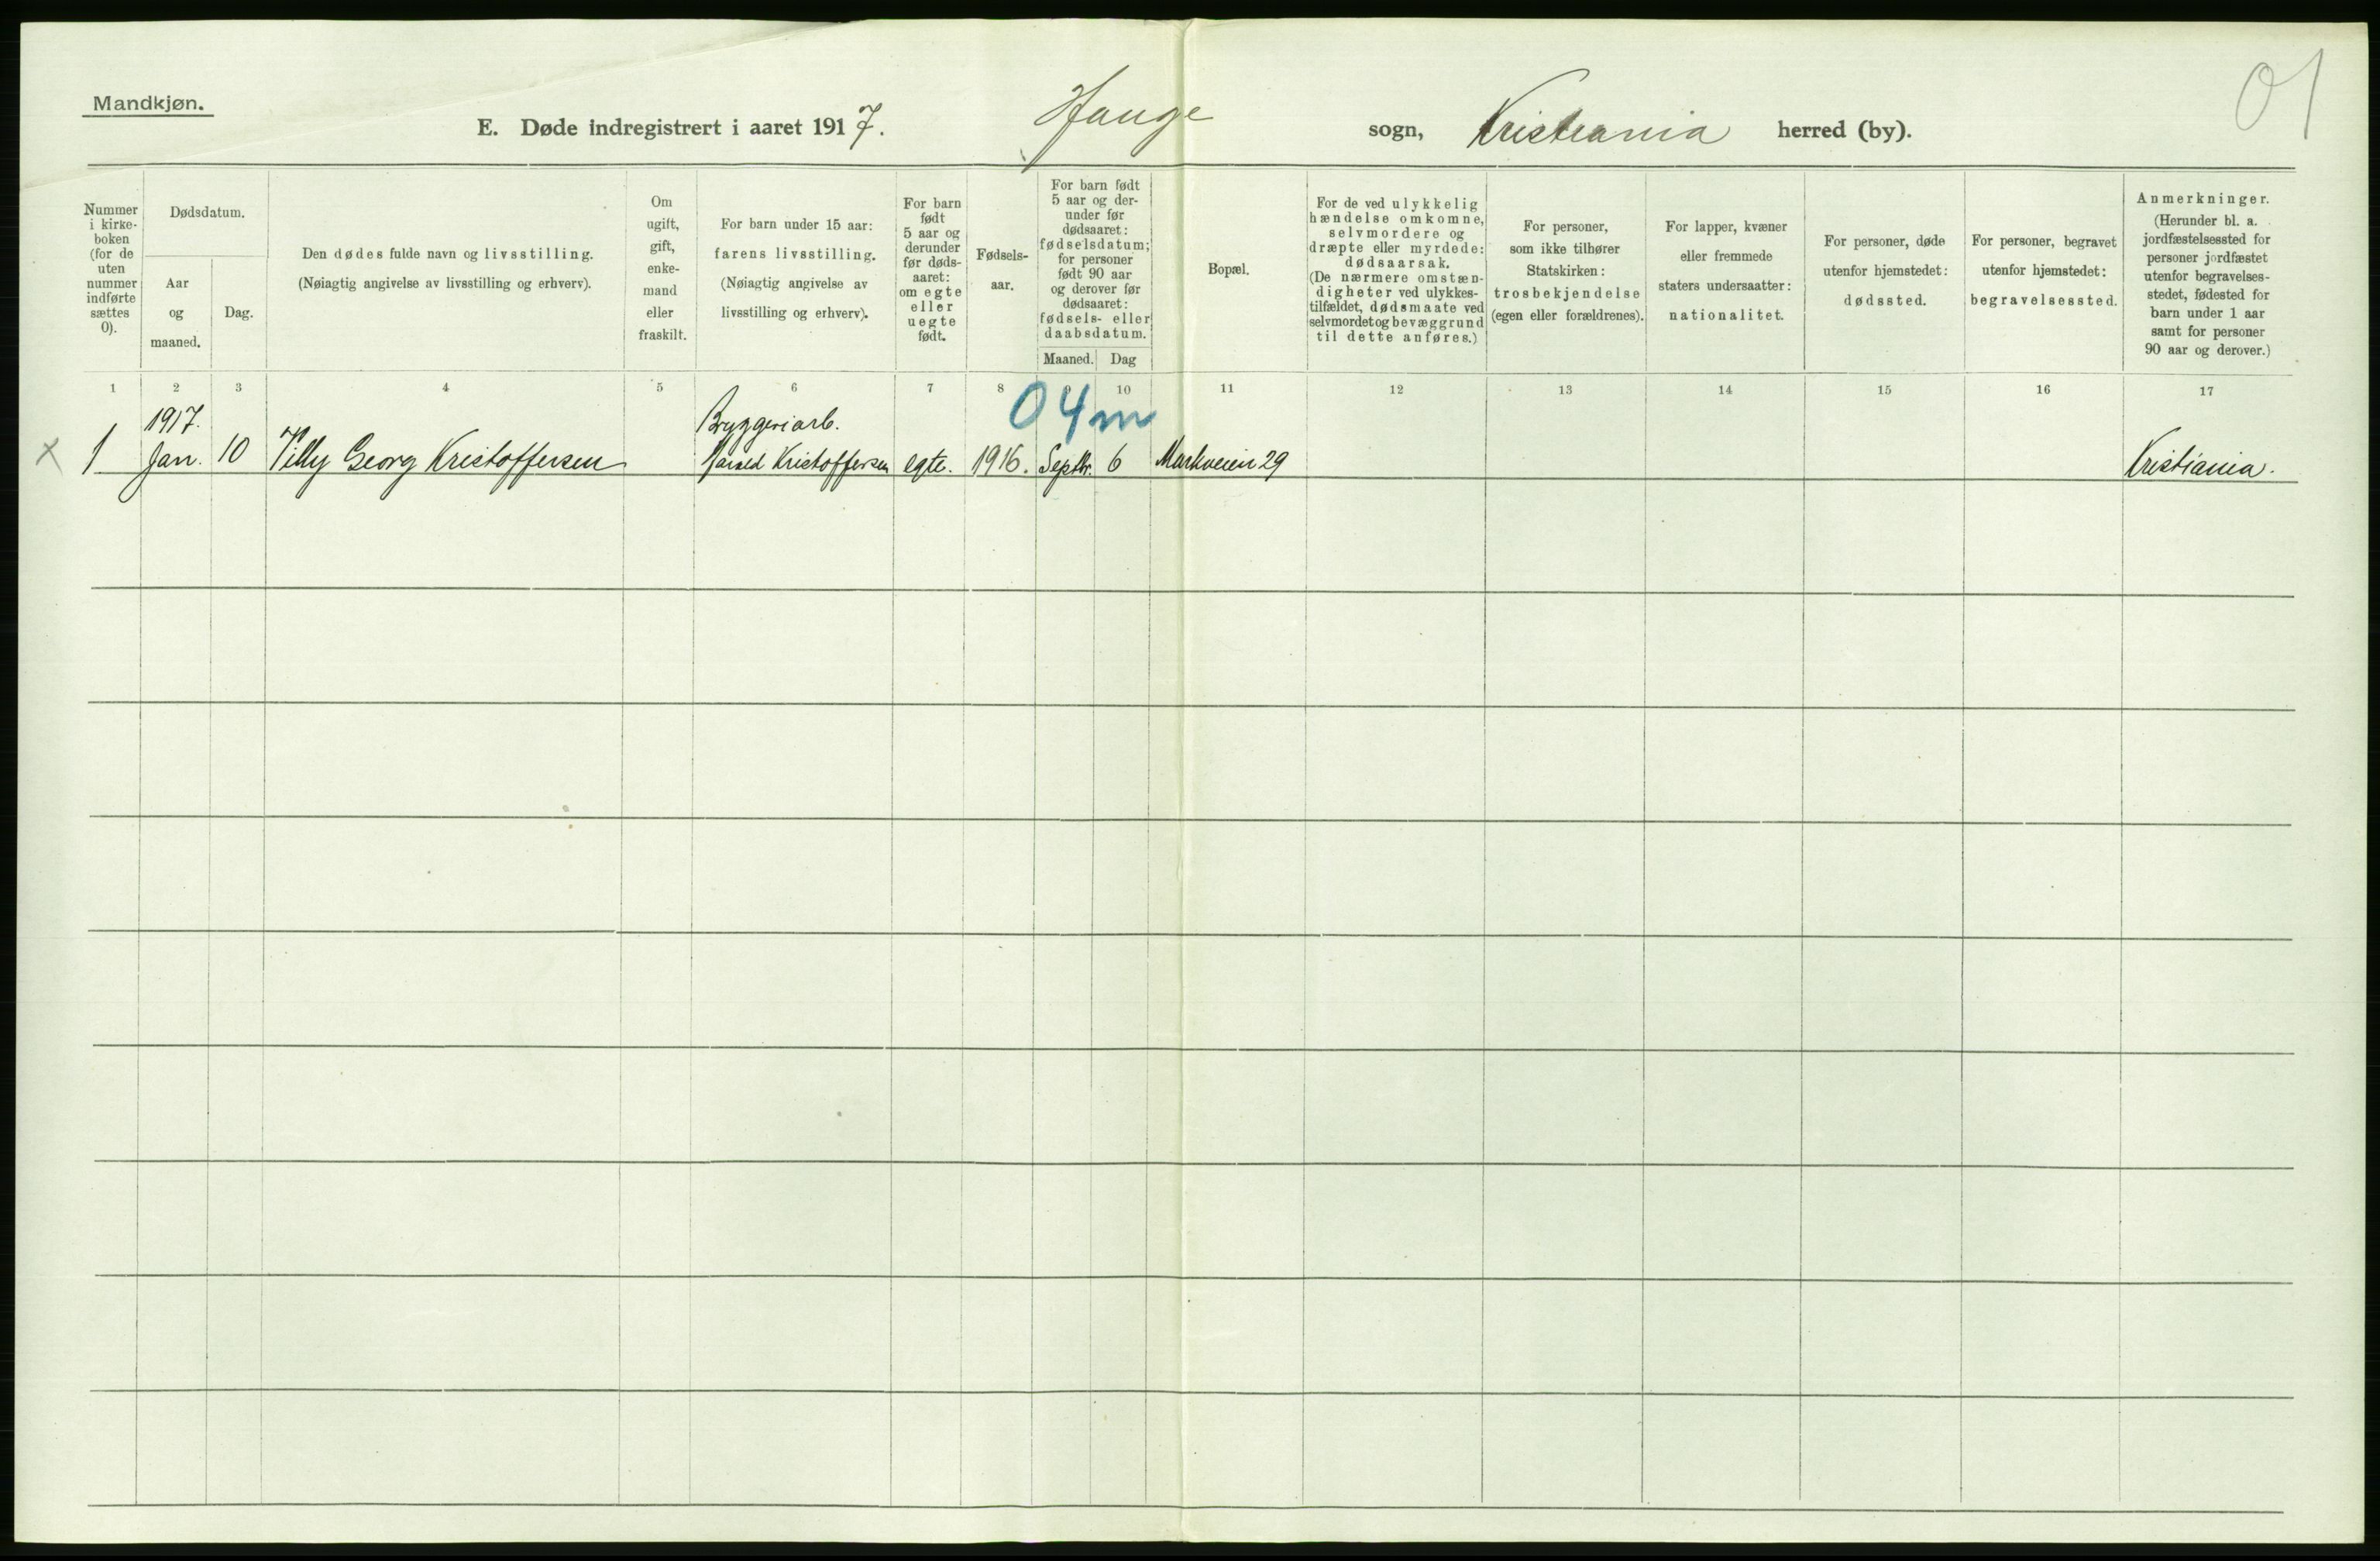 Mandkjøn.
01
E. Døde indregistrert i aaret 1917. Hauge sogn, Kristiania herred (by).
Nummer
i kirke-
boken
(for de
uten
nummer
indførte
sættes
0).
Dødsdatum.
Aar
og
maaned.
Dag.
Den dødes fulde navn og livsstilling.
(Nøiagtig angivelse av livsstilling og erhverv).
Om
ugift,
gift,
enke-
mand
eller
fraskilt.
For barn under 15 aar:
farens livsstilling.
(Nøiagtig angivelse av
livsstilling og erhverv).
For barn
født
5 aar og
derunder
før døds-
aaret:
om egte
eller
uegte
født.
Fødsels-
aar.
For barn født
5 aar og der-
under før
dødsaaret:
fødselsdatum;
for personer
født 90 aar
og derover før
dødsaaret:
fødsels- eller
daabsdatum.
Maaned. Dag
Bopæl.
For de ved ulykkelig
hændelse omkomne,
selvmordere og
dræpte eller myrdede:
dødsaarsak.
(De nærmere omstæn-
digheter ved ulykkes-
tilfældet, dødsmaate ved
selvmordet og bevæggrund
til dette anføres.)
For personer,
som ikke tilhører
Statskirken:
trosbekjendelse
(egen eller forældrenes).
For lapper, kvæner
eller fremmede
staters undersaatter:
nationalitet.
For personer, døde
utenfor hjemstedet:
dødssted.
For personer, begravet
utenfor hjemstedet:
begravelsessted.
Anmerkninger.
(Herunder bl. a.
jordfæstelsessted for
personer jordfæstet
utenfor begravelses-
stedet, fødested for
barn under 1 aar
samt for personer
90 aar og derover.)
1 2 3 4 5 6 7 8 10 11 12 13 14 15 16 17
04m
1917. Bryggeriarb.
x 1 Jan. 10 Villy Georg Kristoffersen Harald Kristoffersen egte. 1916. Septbr. 6 Markveien 29 Kristiania.